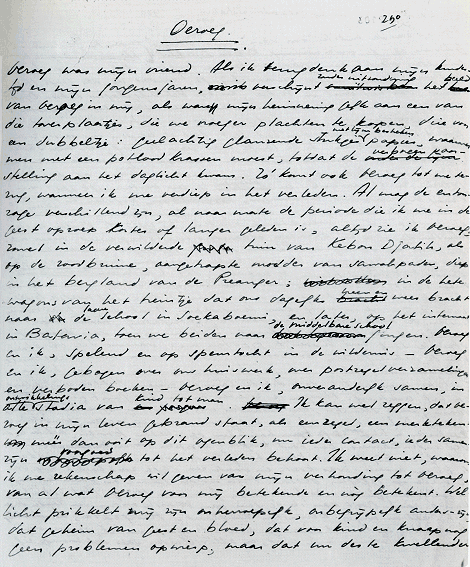 250
Oeroeg.
Oeroeg was mijn vriend. Als ik terugdenk aan mijn kinder-
tijd en mijn jongensjaren, verschijnt zonder uitzondering het beeld
van Oeroeg in mij, als was mijn herinnering gelijk aan een van
die toverplaatjes, die we vroeger plachten te kopen, die voor
een dubbeltje: geelachtig glanzende stukjes papier, waarover
men met een potlood krassen moest, totdat de verborgen voor-
stelling aan het daglicht kwam. Zó komt ook Oeroeg tot me te-
rug, wanneer ik me verdiep in het verleden. Al mag de ento-
rage verschillend zijn, al naar mate de periode die ik me in de
geest oproep korter of langer geleden is, altijd zie ik Oeroeg,
zowel in de verwilderde tuin van Kebon Djatih, als
op de roodbruine, aangetrapte modder van sawahpaden, diep
in het bergland van de Preanger; in de hete
wagons van het treintje dat ons dagelijks weer bracht
naar de lagere school in Soekaboemi, en later op het internaat
in Batavia, toen we beiden naar de middelbare school gingen. Oeroeg
en ik, spelend en op speurtocht in de wildernis – Oeroeg
en ik, gebogen over ons huiswerk, over postzegelverzamelingen
en verboden boeken – Oeroeg en ik, onveranderlijk samen, in
alle ontwikkelings stadia van kind tot man. Ik kan wel zeggen, dat Oe-
roeg in mijn leven gebrand staat, als een zegel, een merkteken:
méér dan ooit op dit ogenblik, nu ieder contact, ieder samen-
zijn voorgoed tot het verleden behoort. Ik weet niet, waarom
ik me rekenschap wil geven van mijn verhouding tot Oeroeg,
van al wat Oeroeg voor mij betekende en nog betekent. Wel-
licht prikkelt mij zijn onherroepelijk, onbegrijpelijk anders-zijn,
dat geheim van geest en bloed, dat voor kind en knaap nog
geen problemen opwierp, maar dat nu des te kwellender